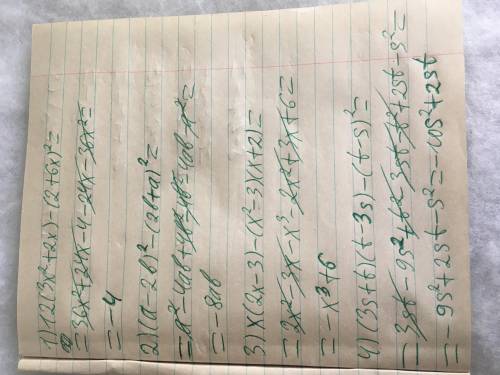 1) 12(3x²+2x)-(2+6x)²=
= 36x²+24x-4-24x-36x²=
= -4
2) (a-2b)²-(2b+a)²=
= a²-4ab+4b²-4b²-4ab-a²=
= -8ab
3) x(2x-3)-(x²-3)(x+2)=
= 2x²-3x-x³-2x²+3x+6=
= -x³+6
4) (3s+t)(t-3s)-(t-s)²=
= 3st-9s²+t²-3st-t²+2st-s²=
= -9s²+2st-s²=-10s²+2st